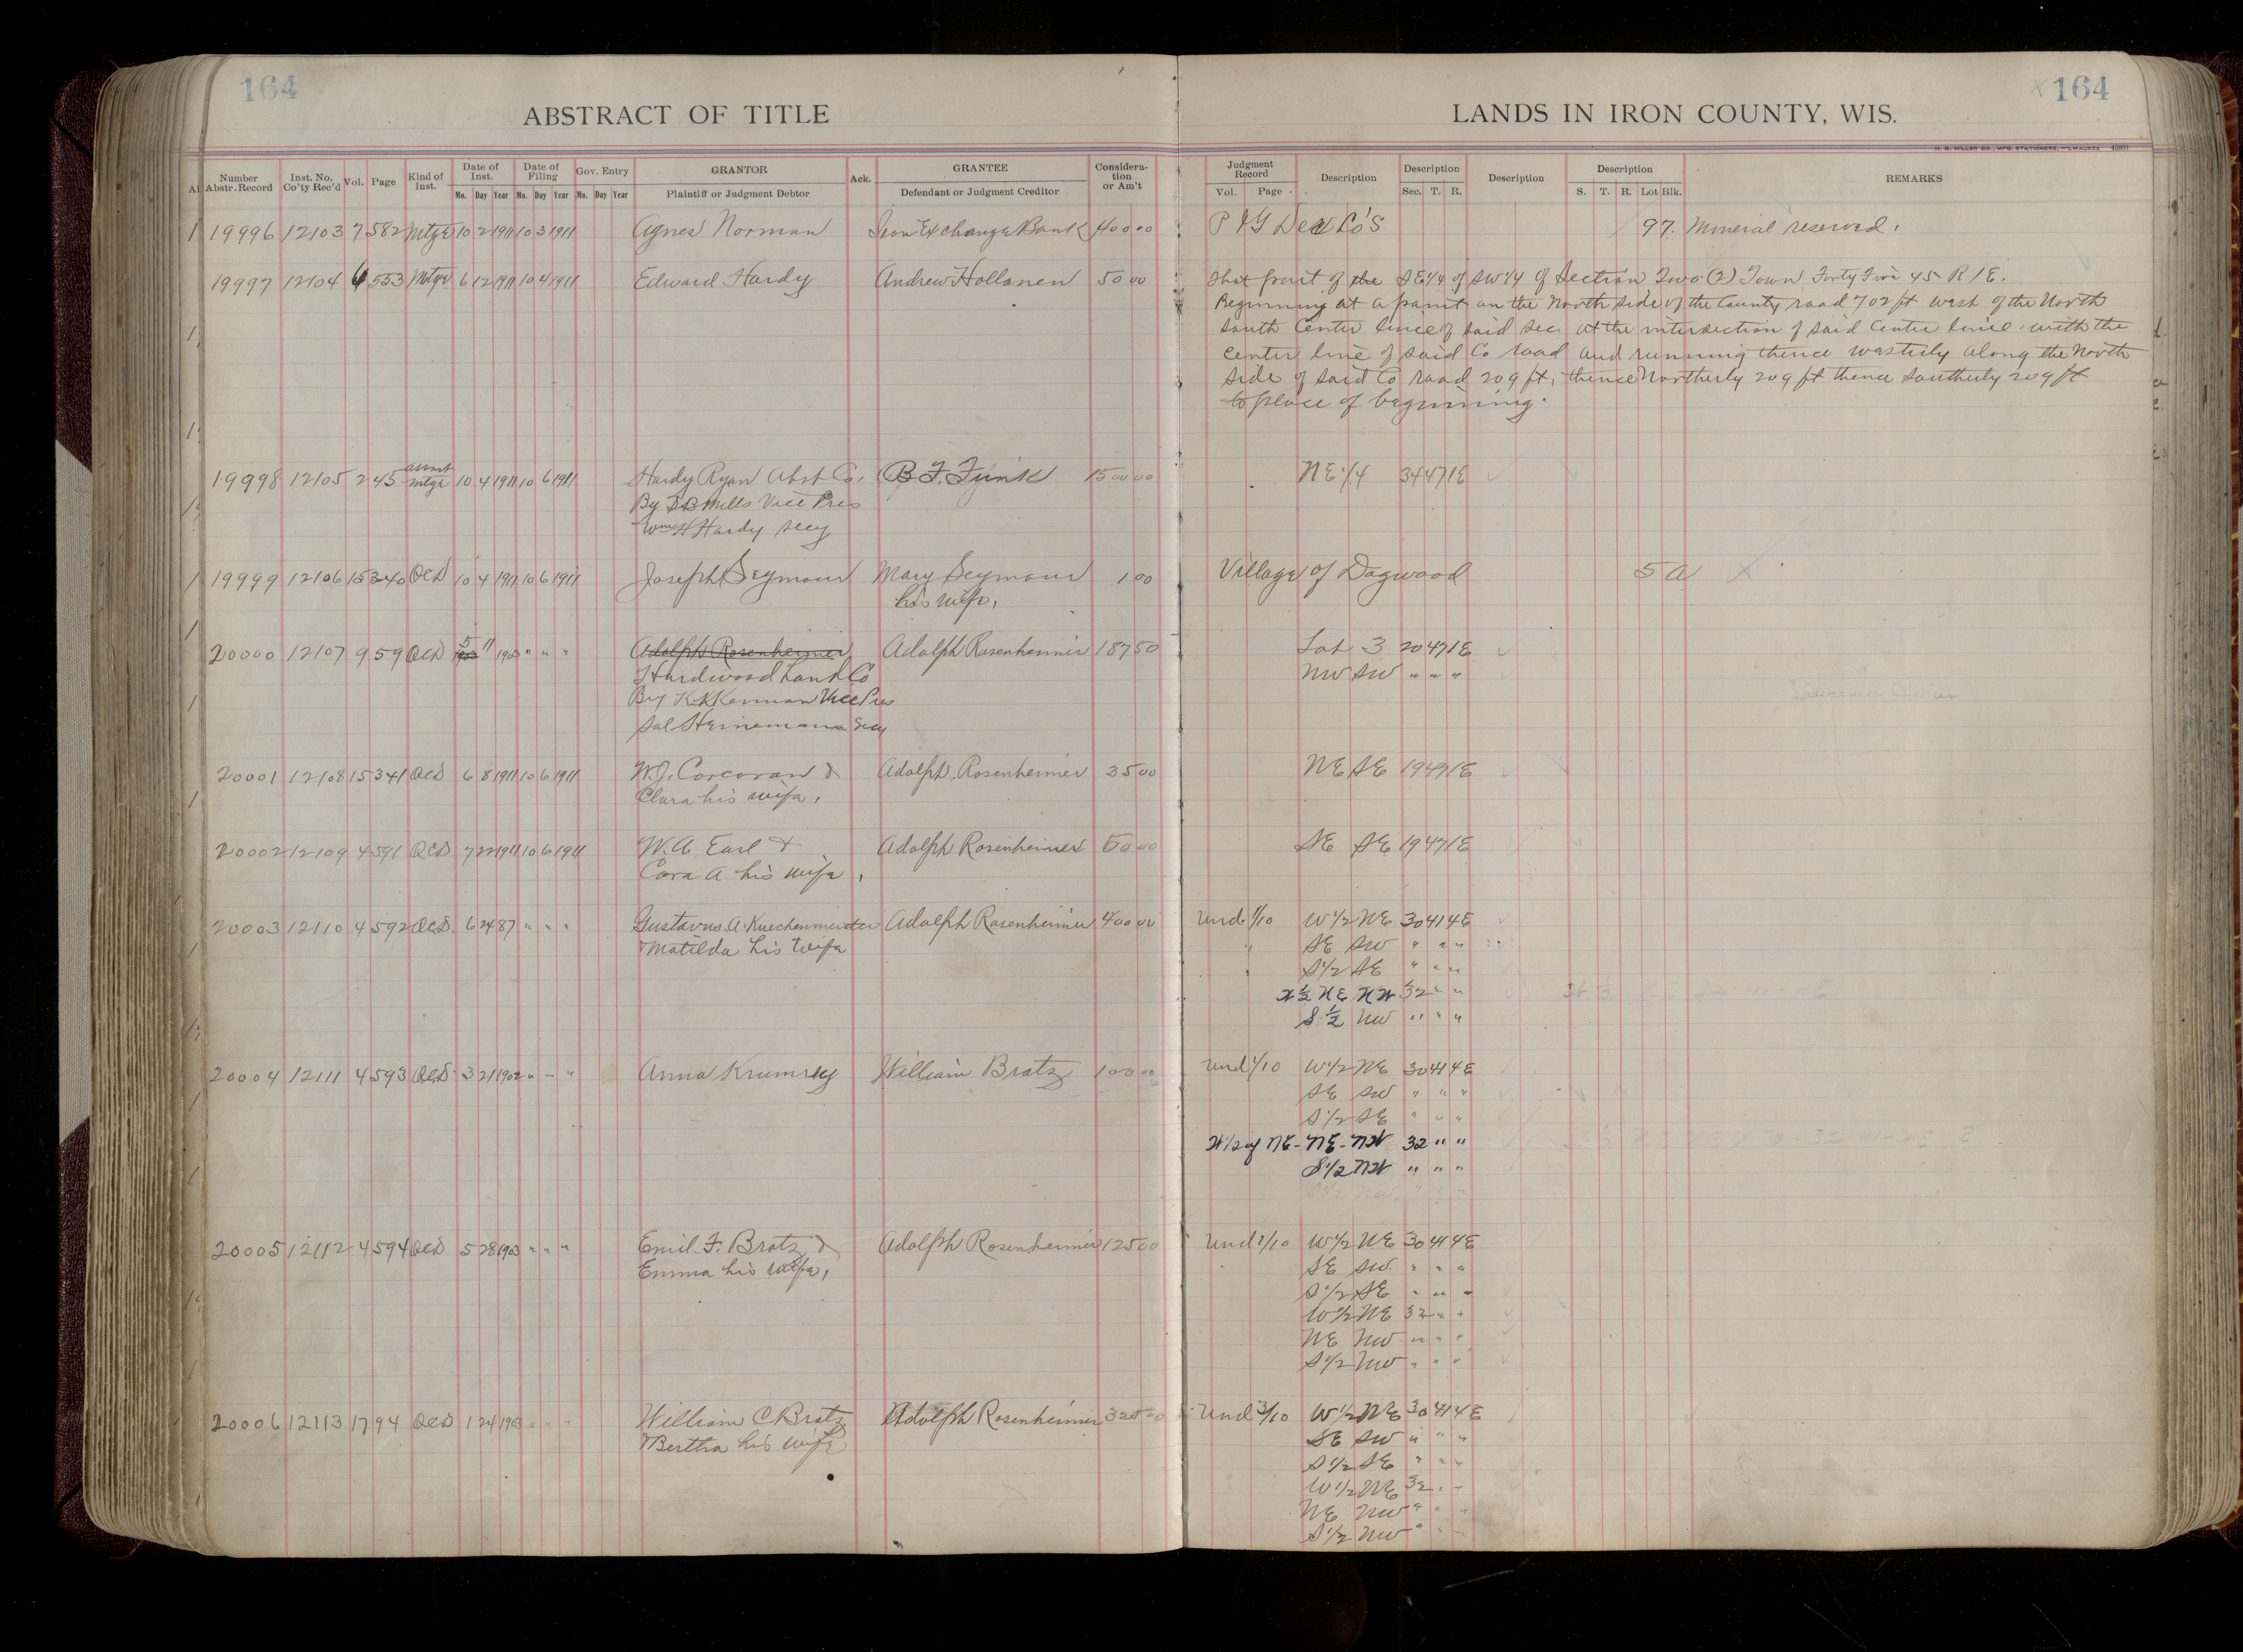 164
164
ABSTRACT OF TITLE
LANDS IN IRON COUNTY, WIS.
H. G. MILLER CO., MFG. STATIONERS, MILWAUKEE
Number Abstr. Record Inst. No. Co'ty Rec'd Vol. Page Kind of Inst. Date of Inst. Mo. Day Year Date of Filing Mo. Day Year Gov. Entry Mo. Day Year GRANTOR Plaintiff or Judgment Debtor Ack. GRANTEE Defendant or Judgment Creditor Considera-tion or Am't
Judgment Record Vol. Page Description Description Sec. T. R. Description Description S. T. R. Lot Blk. REMARKS
19996 12103 7 582 Mtge 10 2 1911 10 3 1911 Agnes Norman Iron Exchange Bank 400 00 P & G Dev Co's 97 Mineral reserved.
19997 12104 6 553 Mtge 6 12 1911 10 4 1911 Edward Hardy Andrew Hollanen 50 00 That part of the SE1/4 of SW1/4 of Section Two (2) Town Forty Five 45 R 1E.
Beginning at a point on the North side of the County road 702 ft west of the North
South Center line of said sec at the intersection of said Center line with the
center line of said Co road and running thence westerly along the North
side of said Co road 209 ft, thence Northerly 209 ft thence Southerly 209 ft
to place of beginning.
19998 12105 2 45 assmt mtge 10 4 1911 10 6 1911 Hardy Ryan Abst Co. B. F. Funk 1500 00 NE 1/4 34 47 1E
By Mills Vice Pres
Wm H Hardy secy
19999 12106 15 340 QCD 10 4 1911 10 6 1911 Joseph Seymour Mary Seymour 1 00 Village of Dogwood 5 a
his wife,
20000 12107 9 59 QCD 5 11 1903 " " " Adolph Rosenheimer Adolph Rosenheimer 187 50 Lot 3 20 47 1E
Hardwood Land Co NW SW " " "
By K K Kennan Vice Pres
Sal Heinemann Secy
20001 12108 15 341 QCD 6 8 1911 10 6 1911 W. J. Corcoran & Adolph Rosenheimer 35 00 NE SE 19 47 1E
Clara his wife,
20002 12109 4 591 QCD 7 22 1911 10 6 1911 W. A. Earl & Adolph Rosenheimer 50 00 SE SE 19 47 1E
Cora A his wife,
20003 12110 4 592 QCD. 6 24 87 " " " Gustavus A. Kuechenmeister Adolph Rosenheimer 400 00 Und. 1/10 W1/2 NE 30 41 4E
& Matilda his wife " SE SW " " "
S1/2 SE " " "
W 1/2 NE NE NW 32 " "
S 1/2 NW " " "
20004 12111 4 593 QCD 3 21 1902 " " " Anna Krumrey William Bratz 100 00 Und 1/10 W1/2 NE 30 41 4E
SE SW " " "
S1/2 SE " " "
W1/2 of NE - NE - NW 32 " "
S1/2 NW " " "
20005 12112 4 594 QCD 5 28 1903 " " " Emil F. Bratz & Adolph Rosenheimer 125 00 Und 1/10 W1/2 NE 30 41 4E
Emma his wife, SE SW " " "
S1/2 SE " " "
W1/2 NE 32 " "
NE NW " " "
S1/2 NW " " "
20006 12113 17 94 QCD 1 24 1903 " " " William C Bratz Adolph Rosenheimer 325 00 Und 3/10 W1/2 NE 30 41 4E
& Bertha his wife SE SW " " "
S1/2 SE " " "
W1/2 NE 32 " "
NE NW " " "
S1/2 NW " " "